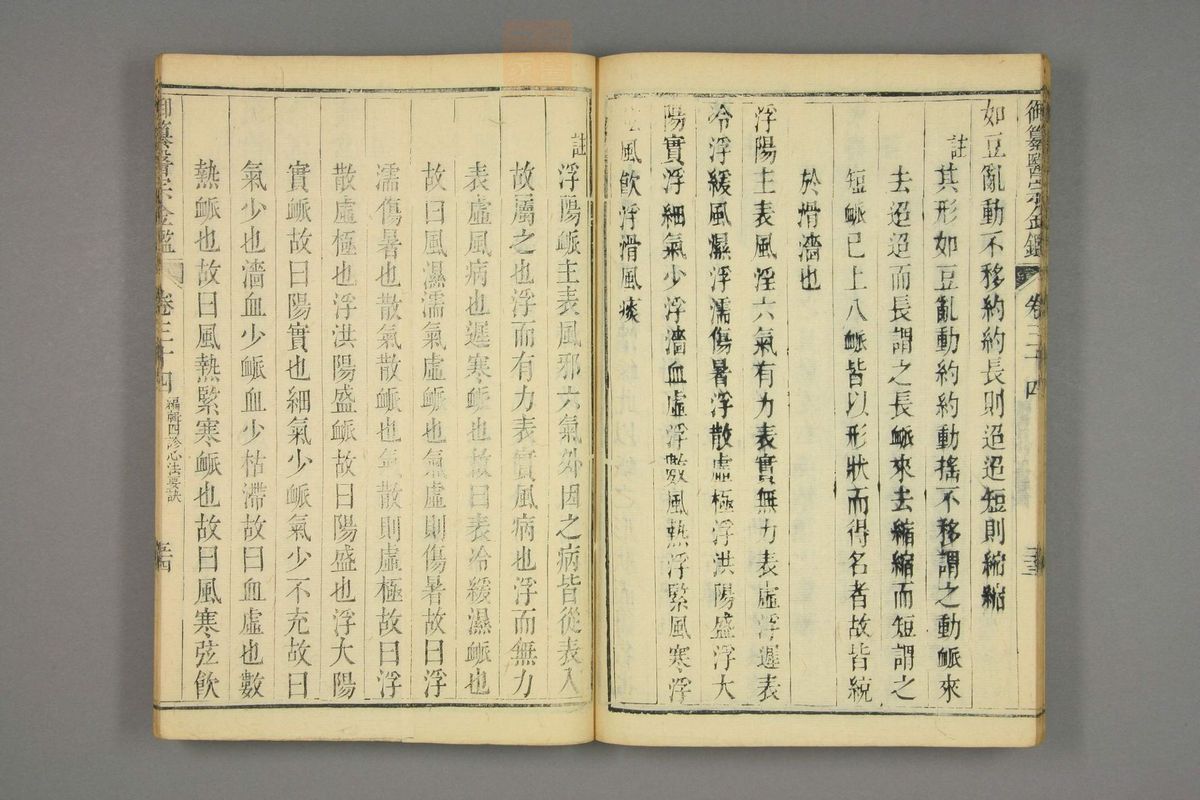 御纂醫宗金鑑 卷三十四
如豆亂動不移約約長則迢迢短則縮縮
註其形如豆亂動約約動搖不移謂之動脈來
去迢迢而長謂之長脈來去縮縮而短謂之
短脈已上八脈皆以形狀而得名者故皆統
於滑濇也
浮陽主表風淫六氣有力表實無力表虛浮遲表
冷浮緩風濕浮濡傷暑浮散虛極浮洪陽盛浮大
陽實浮細氣少浮濇血虛浮數風熱浮緊風寒浮
風飲浮滑風痰
註浮陽脈主表風邪六氣外因之病皆從表入
故屬之也浮而有力表實風病也浮而無力
表虛風病也遲寒脈也故曰表冷緩濕脈也
故曰風濕濡氣虛脈也氣虛則傷暑故曰浮
濡傷暑也散氣散脈也氣散則虛極故曰浮
散虛極也浮洪陽盛脈故曰陽盛也浮大陽
實脈故曰陽實也細氣少脈氣少不充故曰
氣少也濇血少脈血少枯滯故曰血虛也數
熱脈也故曰風熱緊寒脈也故曰風寒弦飲
御纂醫宗金鑑 卷三十四 編輯四診心法要訣